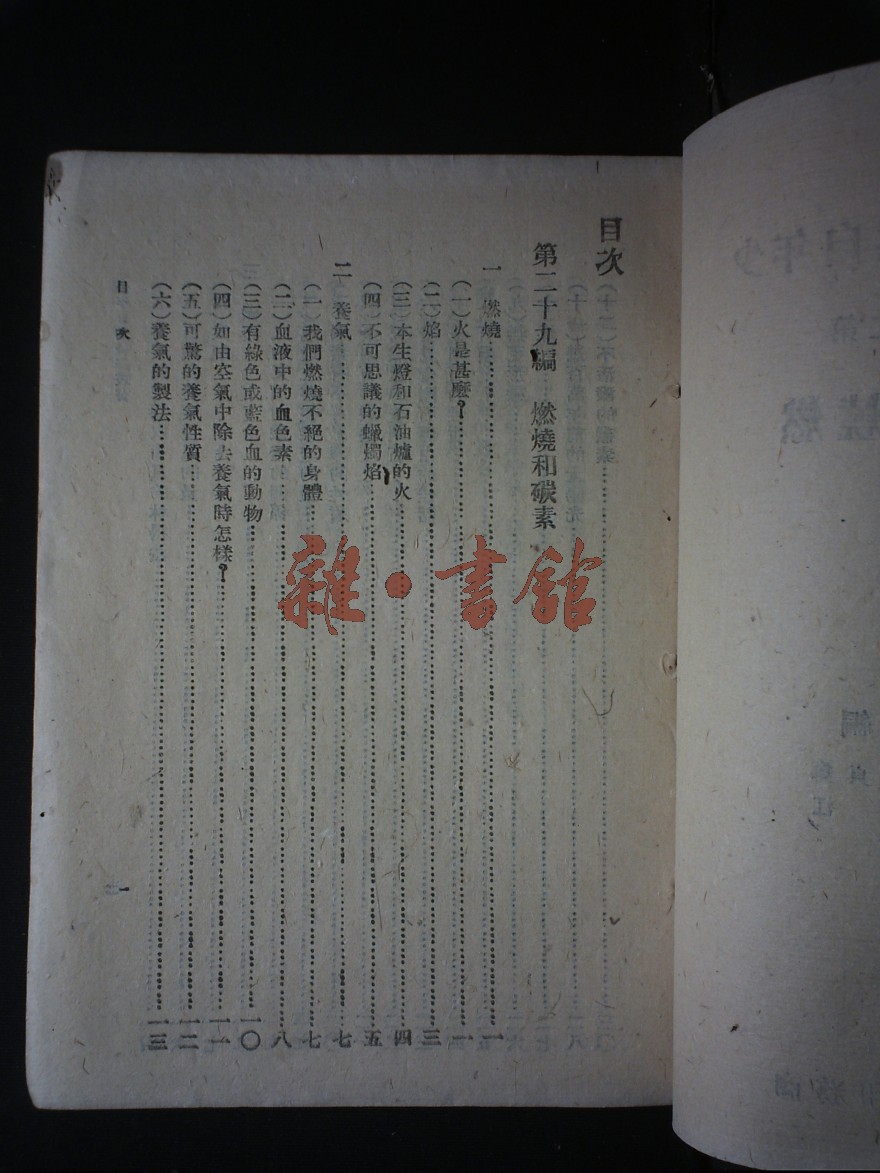 目次
第二十九編 燃燒和碳素
一 燃燒……一
(一)火是甚麼?……一
(二)焰……三
(三)本生燈和石油爐的火……四
(四)不可思議的蠟燭焰……五
二 養氣……七
(一)我們燃燒不絕的身體……七
(二)血液中的血色素……八
(三)有綠色或藍色血的動物……一〇
(四)如由空氣中除去養氣時怎樣?……一一
(五)可驚的養氣性質……一二
(六)養氣的製法……一三
目次
一
雜·書館